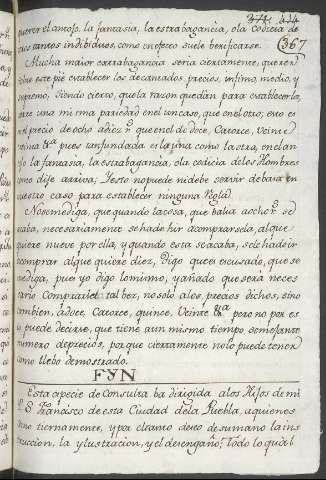 374 414
367
querer el antojo, la fantasia, la estrabagancia, o la codicia de
tantos individuos, como en ofreso suele berificarse.
Mucha maior extrabagancia seria ciertamente, querer
sobre este pie establecer los decantados precios, infimo, medio, y
supremo, siendo cierto, que la razon que dán para establecerlo,
una misma pariedad en el un caso, que en el otro; esto es
el precio de ocho a diez p.s que en el de doce, Catorce, Veinte
pues tan fundada es la una como la otra, en el an
la fantasia, la estrabagancia, o la codicia de los Hombres
como dije arriva; Y esto no puede ni debe servir de basa en
nuestro caso para establecer ninguna Regla.
No se me diga, que quando la cosa, que balia a ocho p.s se
acaba, necesariamente se ha de hir a comprarsela, al que
quiere nueve por ella, y quando esta se acaba, se ha de ir
comprar al que quiere diez, digo que es escusado, que se
me diga, pues yo digo lo mismo, y añado que será neces
sario Comprarle tal bez, no solo a los precios dichos, sino
tambien, a doce, Catorce, quince, Veinte p.s pero no por es
o puede decirse, que tiene a un mismo tiempo semejante
numero de precios, porque ciertamente no lo puede tener
como llebo demostrado.
FYN
Esta especie de Consulta ba dirigida a los Hijos de mi
P. S. Francisco de esta Ciudad de la Puebla, a quienes
amo tiernamente, y por el sumo deseo de su mano la ins
truccion, la Ylustracion, y el desengaño; Todo lo qual